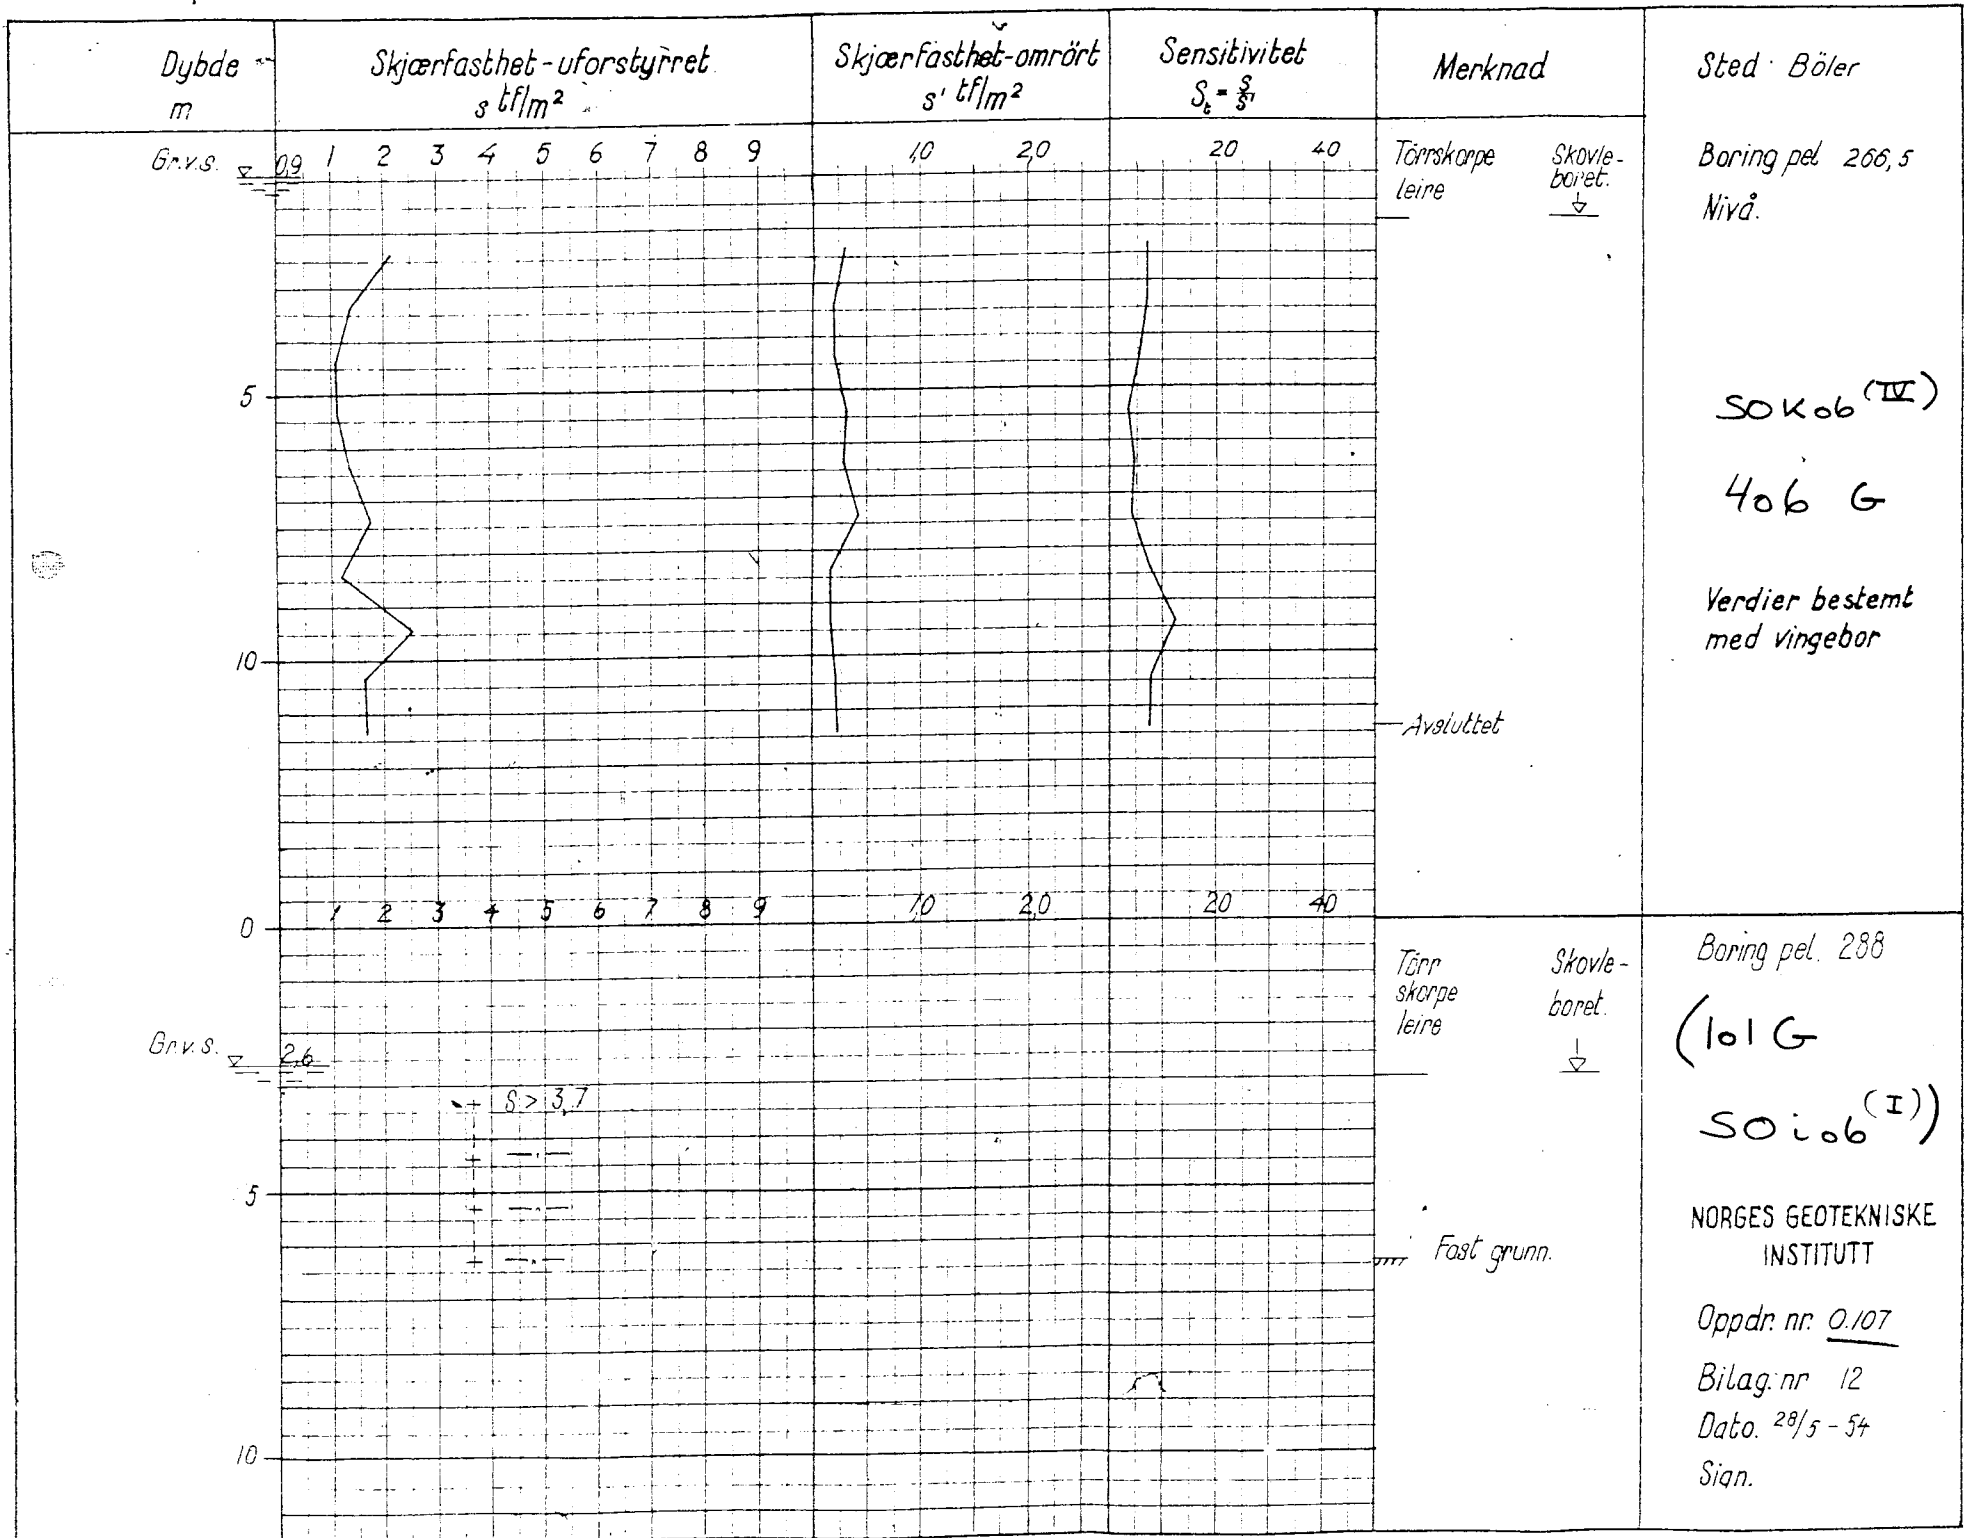 Dybde
m
Skjærfasthet-uforstyrret
s tf/m²
Skjærfasthet-omrört
s' tf/m²
Sensitivitet
Sₜ = s/s'
Merknad
Sted Böler
Gr.v.s. 0,9
1 2 3 4 5 6 7 8 9
1,0 2,0
20 40
Törrskorpe
leire
Skovle-
boret.
Boring pel 266,5
Nivå.
5
SOKob (IV)
406 G
Verdier bestemt
med vingebor
10
Avsluttet
1 2 3 4 5 6 7 8 9
1,0 2,0
20 40
0
Törr
skorpe
leire
Skovle-
boret.
Boring pel. 288
(101 G
SOiob (I))
Gr.v.s. 2,6
S > 3,7
5
Fast grunn.
NORGES GEOTEKNISKE
INSTITUTT
Oppdr. nr. O.107
Bilag. nr 12
Dato. 28/5 - 54
Sign.
10